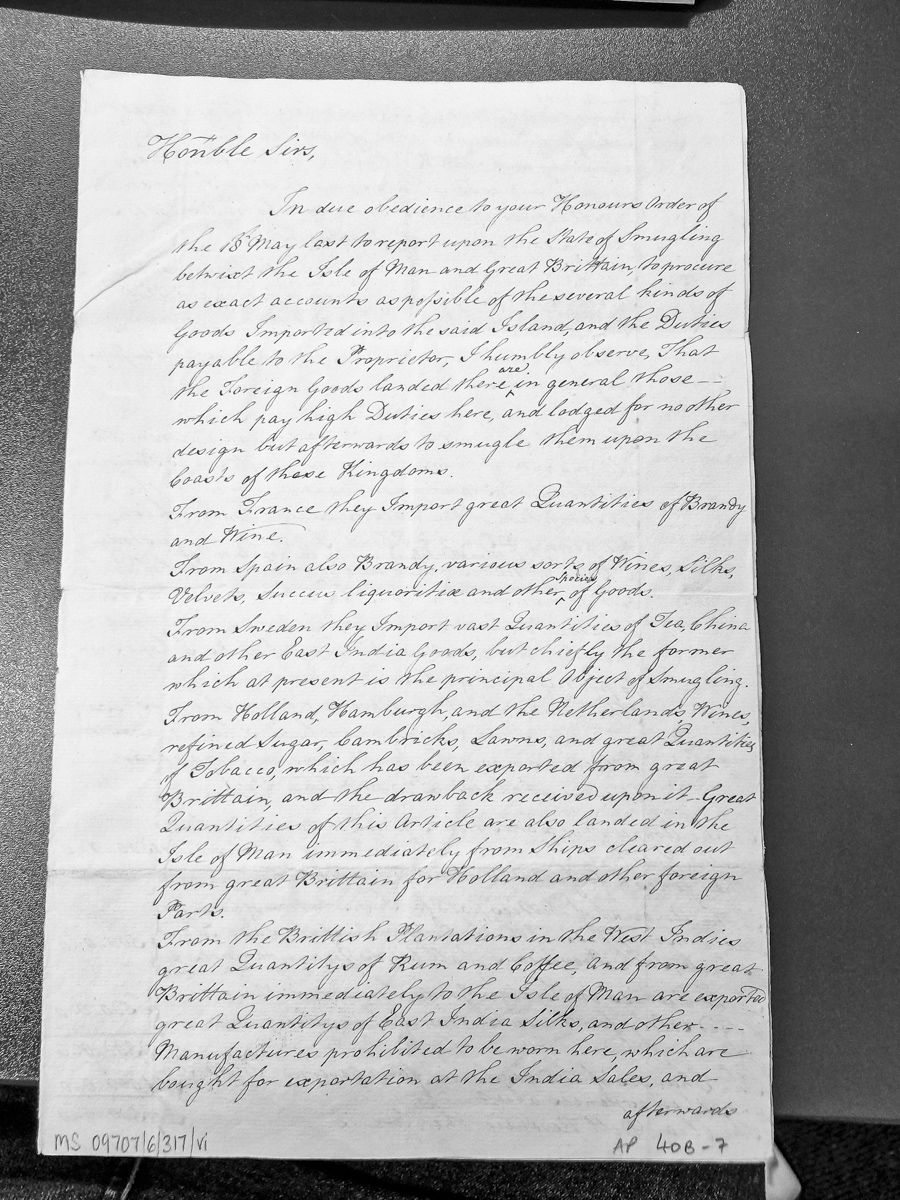 Hon̅ble Sirs,
In due obedience to your Honours Order of
the 18th May last to report upon the State of Smugling
betwixt the Isle of Man and Great Brittain, to procure
as exact accounts as possible of the several kinds of
Goods Imported into the said Island, and the Duties
payable to the Proprietor, I humbly observe, That
the Foreign Goods landed there ^are in general, those --
which pay high Duties here, and lodged for no other
design but afterwards to smugle them upon the
Coasts of these Kingdoms.
From France they Import great Quantities of Brandy
and Wine.
From Spain also Brandy, various sorts of Wines, Silks,
Velvets, Succus liquoritiæ and other ^Species of Goods.
From Sweden they Import vast Quantities of Tea, China
and other East India Goods, but chiefly the former
which at present is the principal Object of Smugling.
From Holland, Hamburgh, and the Netherlands, Wines,
refined Sugar, Cambricks, Lawns, and great Quantities
of Tobacco, which has been exported from great
Brittain, and the drawback received upon it - Great
Quantities of this Article are also landed in the
Isle of Man immediately from Ships cleared out
from great Brittain for Holland and other foreign
Parts.
From the Brittish Plantations in the West Indies
great Quantitys of Rum and Coffee, and from great
Brittain immediately to the Isle of Man are exported
great Quantitys of East India Silks, and other ----
Manufactures prohibited to be worn here, which are
bought for exportation at the India Sales, and
afterwards
MS 09707/6/317/vi
AP 40B-7